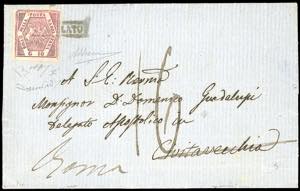 POSTA
G 10
LATO
A S. E. Revma
Monsignor D. Domenico Guadalupi
Delegato Apostolico in
Civitavecchia
Roma
16